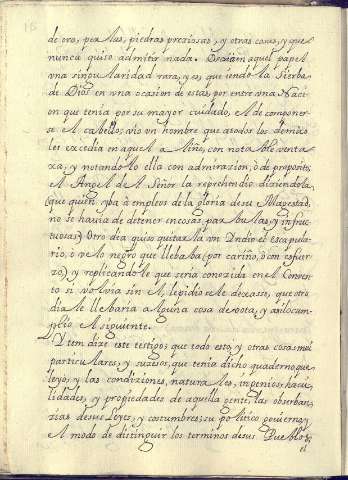 de oro, perlas, piedras preziosas, y otras cosas, y que
nunca quiso admitir nada. Dezia en aquel papel
vna singularidad rara, y es, que iendo la Sierba
de Dios en vna ocasion de estas, por entre vna Naci-
on que tenia por su mayor cuidado, el de componer-
se el cabello; vio vn hombre que a todos los demas
le excedia en aquel aliño, con notable venta-
xa, y notandolo ella con admirazion; ò de proposito
el Angel del Señor la reprehendio diciendola,
(que quien yba à empleos de la gloria de su Magestad,
no se havia de detener en cosas parbulas, y infruc-
tuosas.) Otro dia quiso quitarla vn Indio el escapula-
rio, ò velo negro que llebaba (por cariño, ò con esfuer-
zo) y replicandole que seria conozida en el Conven-
to si volvia sin el, le pidio se le dexasse, que otro
dia le llebaria alguna cosa devota, y asi lo cum-
plio el siguiente.
Y tem dize este testigo; que todo esto, y otras cosas mui
particulares, y suzesos, que tenia dicho quaderno que
leyo; y las condiziones, naturales, ingenios, hauì-
lidades, y propiedades de aquella gente, las obserban-
zias de sus Leyes, y costumbres; su politico govierno, y
el modo de distinguir los terminos de sus Pueblos,
el